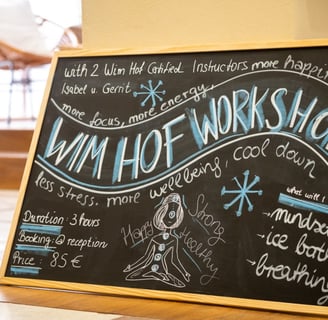 with 2 Wim Hof Certified Instructors more happi
Isabel u. Gerrit
more focus, more energy,
WIM HOF WORKSHO
less stress, more wellbeing, cool down
Duration: 3 hours
Booking: @ reception
Price: 85 €
Happy Strong Healthy
what will i
- mindse
- ice bath
- breathing